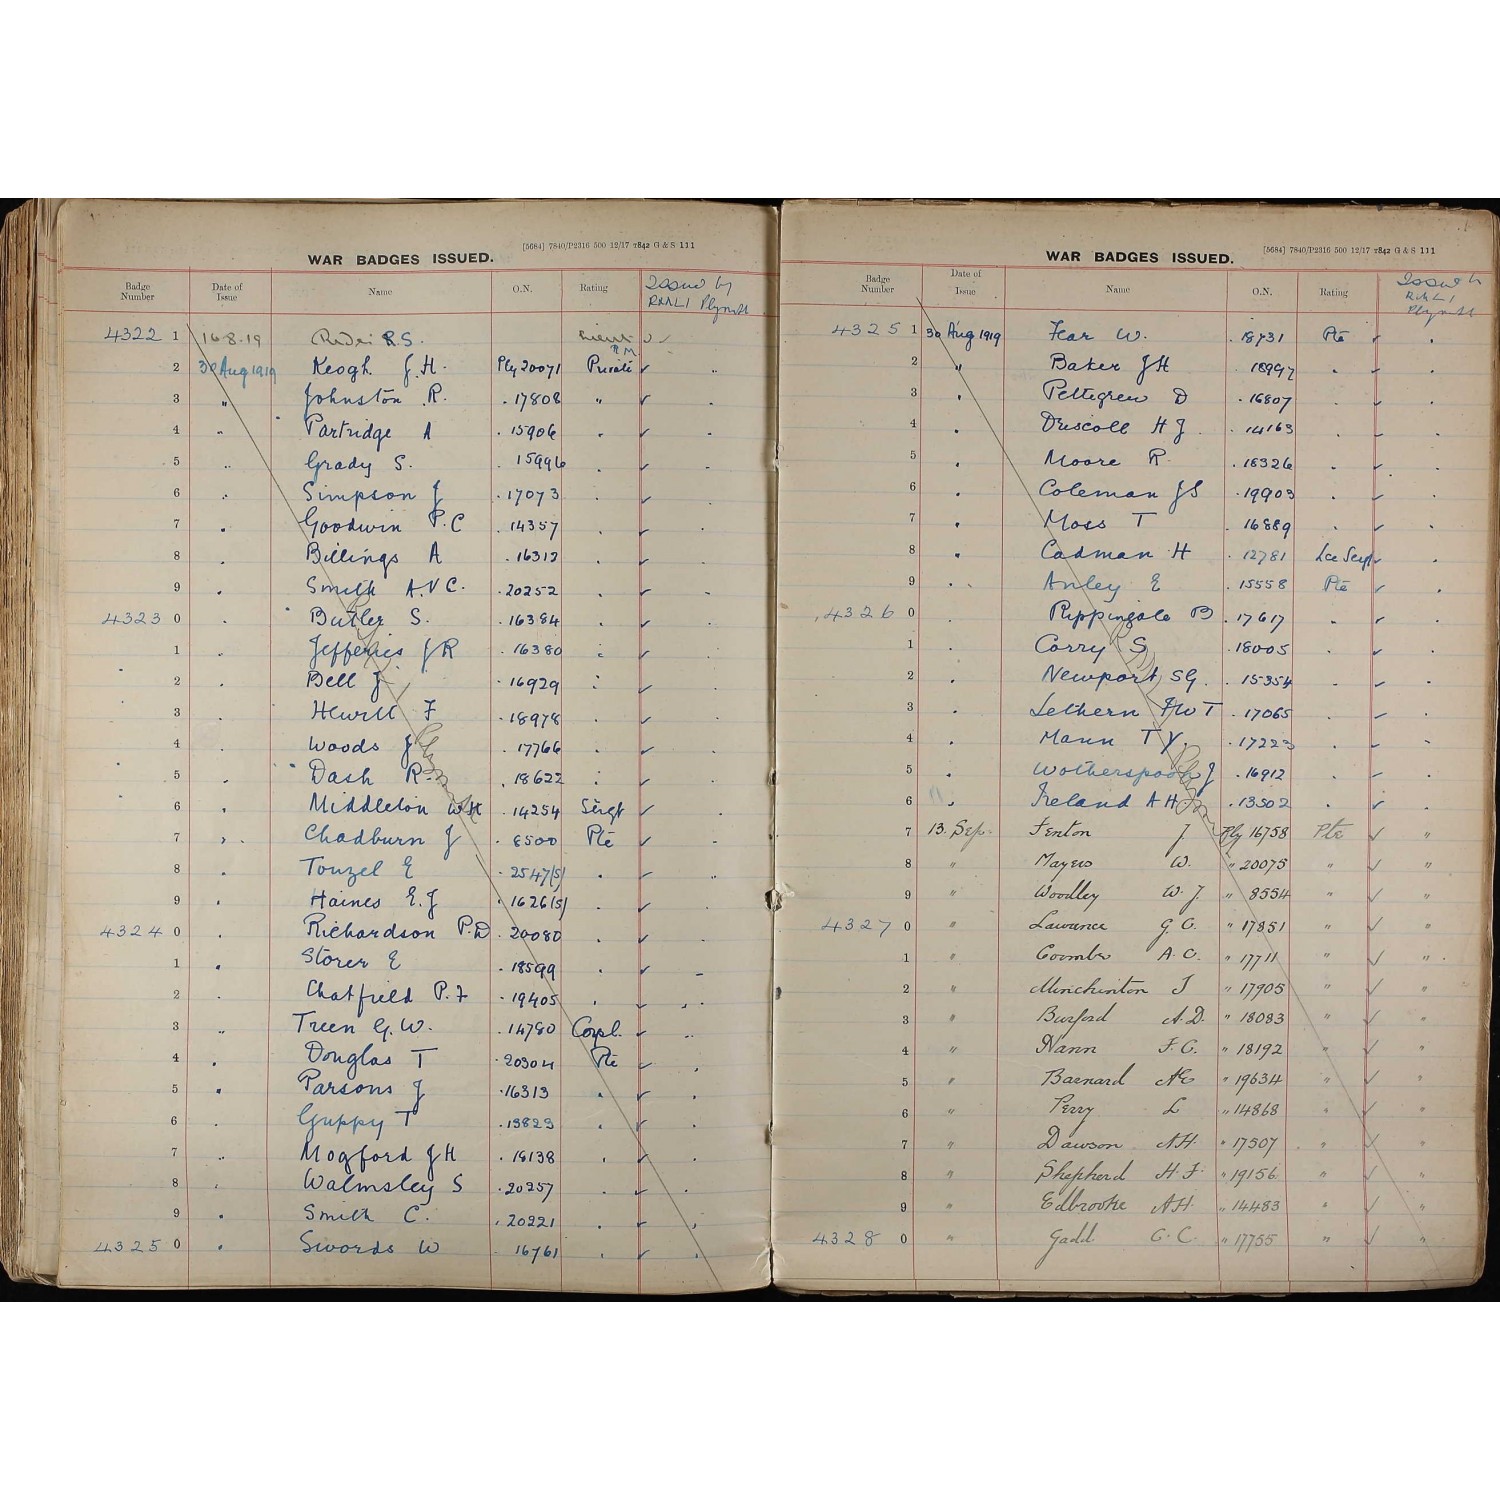 [5684] 7840/P2316 500 12/17 7842 G & S 111
WAR BADGES ISSUED.
Badge Number Date of Issue Name O.N. Rating Issued by RMLI Plymouth
4322 1 16.8.19 R.S. Lieut RM
2 30 Aug 1919 Keogh J.H. Ply 20071 Private
3 " Johnston R. 17808 "
4 " Partridge A 15906
5 " Grady S. 15996
6 " Simpson J 17073
7 " Goodwin P.C 14357
8 " Billings A 16312
9 " Smith A.V.C. 20252
4323 0 Butler S. 16384
1 " Jefferies J R 16380
2 Bell J 16929
3 Hewitt F 18978
4 Woods J 17766
5 Dash R. 18622
6 Middleton W H 14254 Sergt
7 Chadburn J 8500 Pte
8 Touzel E 2547(S)
9 Haines E.J 1626(S)
4324 0 Richardson P.D 20080
1 Storer E 18599
2 Chatfield P.F 19405
3 " Treen G.W. 14780 Corpl.
4 Douglas T 20304 Pte
5 Parsons J 16313
6 Guppy T 13823
7 " Mogford J H 18138
8 Walmsley S 20257
9 Smith C. 20221
4325 0 Swords W 16761
[5684] 7840/P2316 500 12/17 7842 G & S 111
WAR BADGES ISSUED.
Badge Number Date of Issue Name O.N. Rating Issued by RMLI Plymouth
4325 1 30 Aug 1919 Fear W. 18731 Pte
2 " Baker J H 18997
3 Pettegrew D 16807
4 Driscoll H J 14163
5 Moore R. 18326
6 Coleman J S 19903
7 Moss T 16889
8 Cadman H 12781 Lce Sergt
9 Anley E 15558 Pte
4326 0 Rippingale B 17617
1 Corry S 18005
2 Newport S G. 15354
3 Lethern F W T 17065
4 Mann T V. 17223
5 Wotherspoon J 16912
6 Ireland A H 13502
7 13. Sep. Fenton J Ply 16758 Pte "
8 " Mayers W. " 20075 " "
9 " Woodley W. J. " 8554 " "
4327 0 " Lawrence G. C. " 17851 " "
1 " Coombes A. C. " 17711 " "
2 " Minchinton J " 17905 " "
3 " Burford A. D. " 18083 " "
4 " Nann F. C. " 18192 " "
5 " Barnard A E " 19634 " "
6 " Perry L " 14868 " "
7 " Dawson A H. " 17507 " "
8 " Shepherd H. F. " 19156 " "
9 " Edbrooke A H. " 14483 " "
4328 0 " Gadd C. C. " 17755 " "